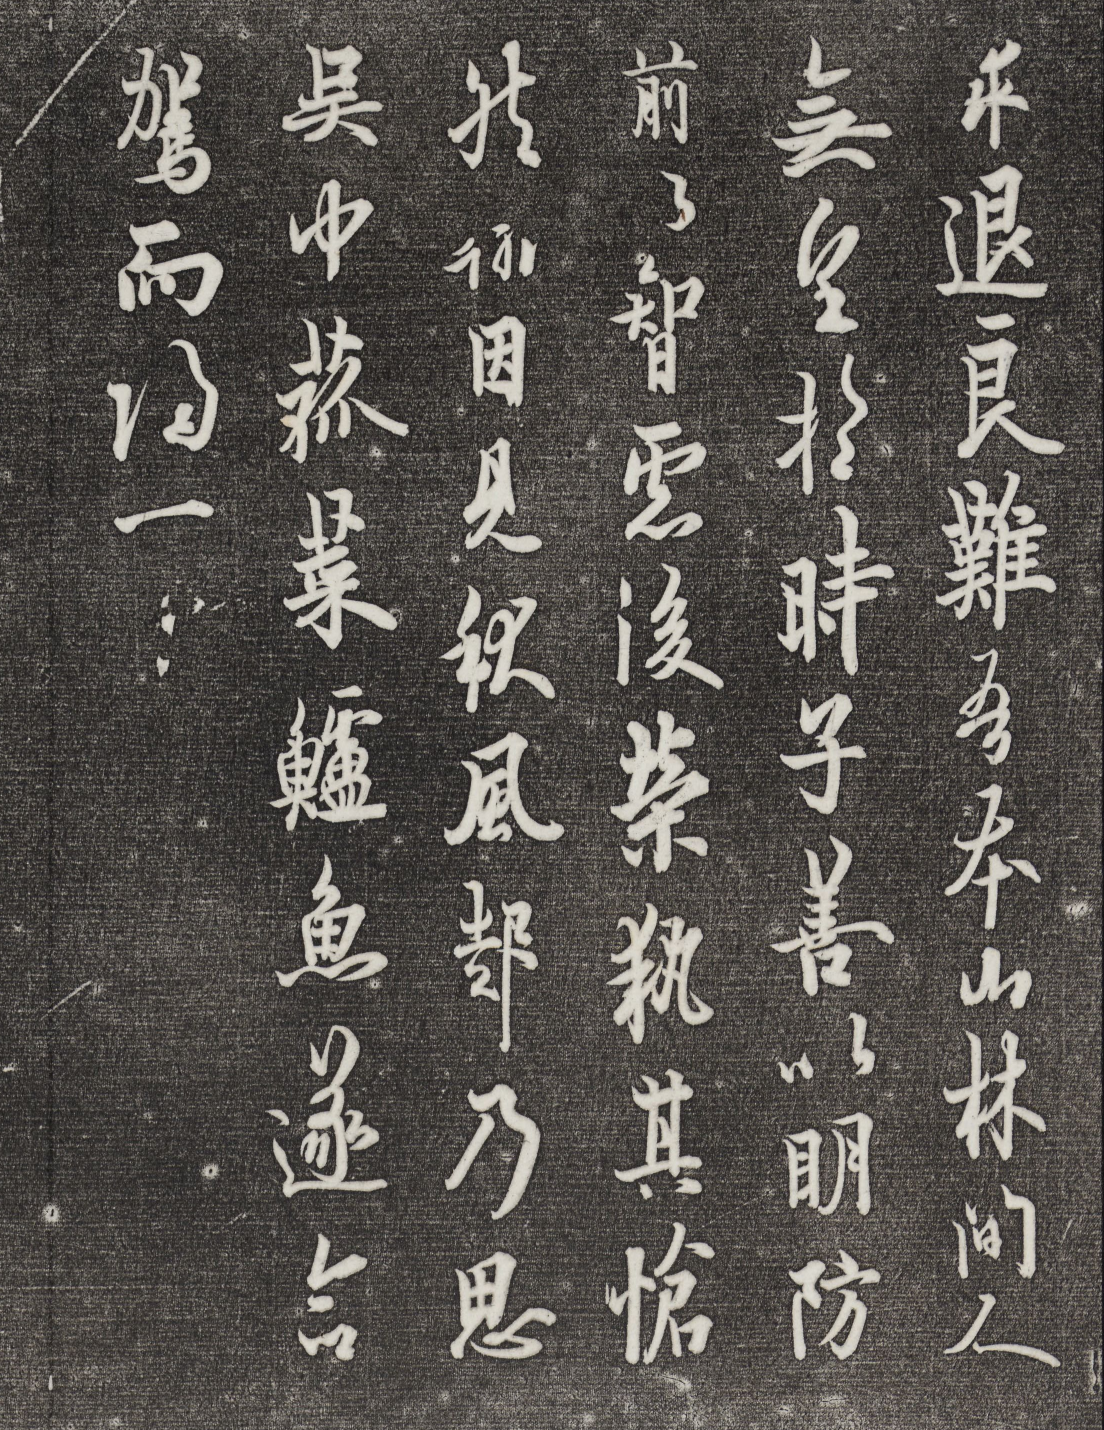 求退良難吾本山林間人
無望於時子善以明防
前以智慮後榮執其愴
然因見秋風乃思
吳中菰菜鱸魚遂命
駕而歸